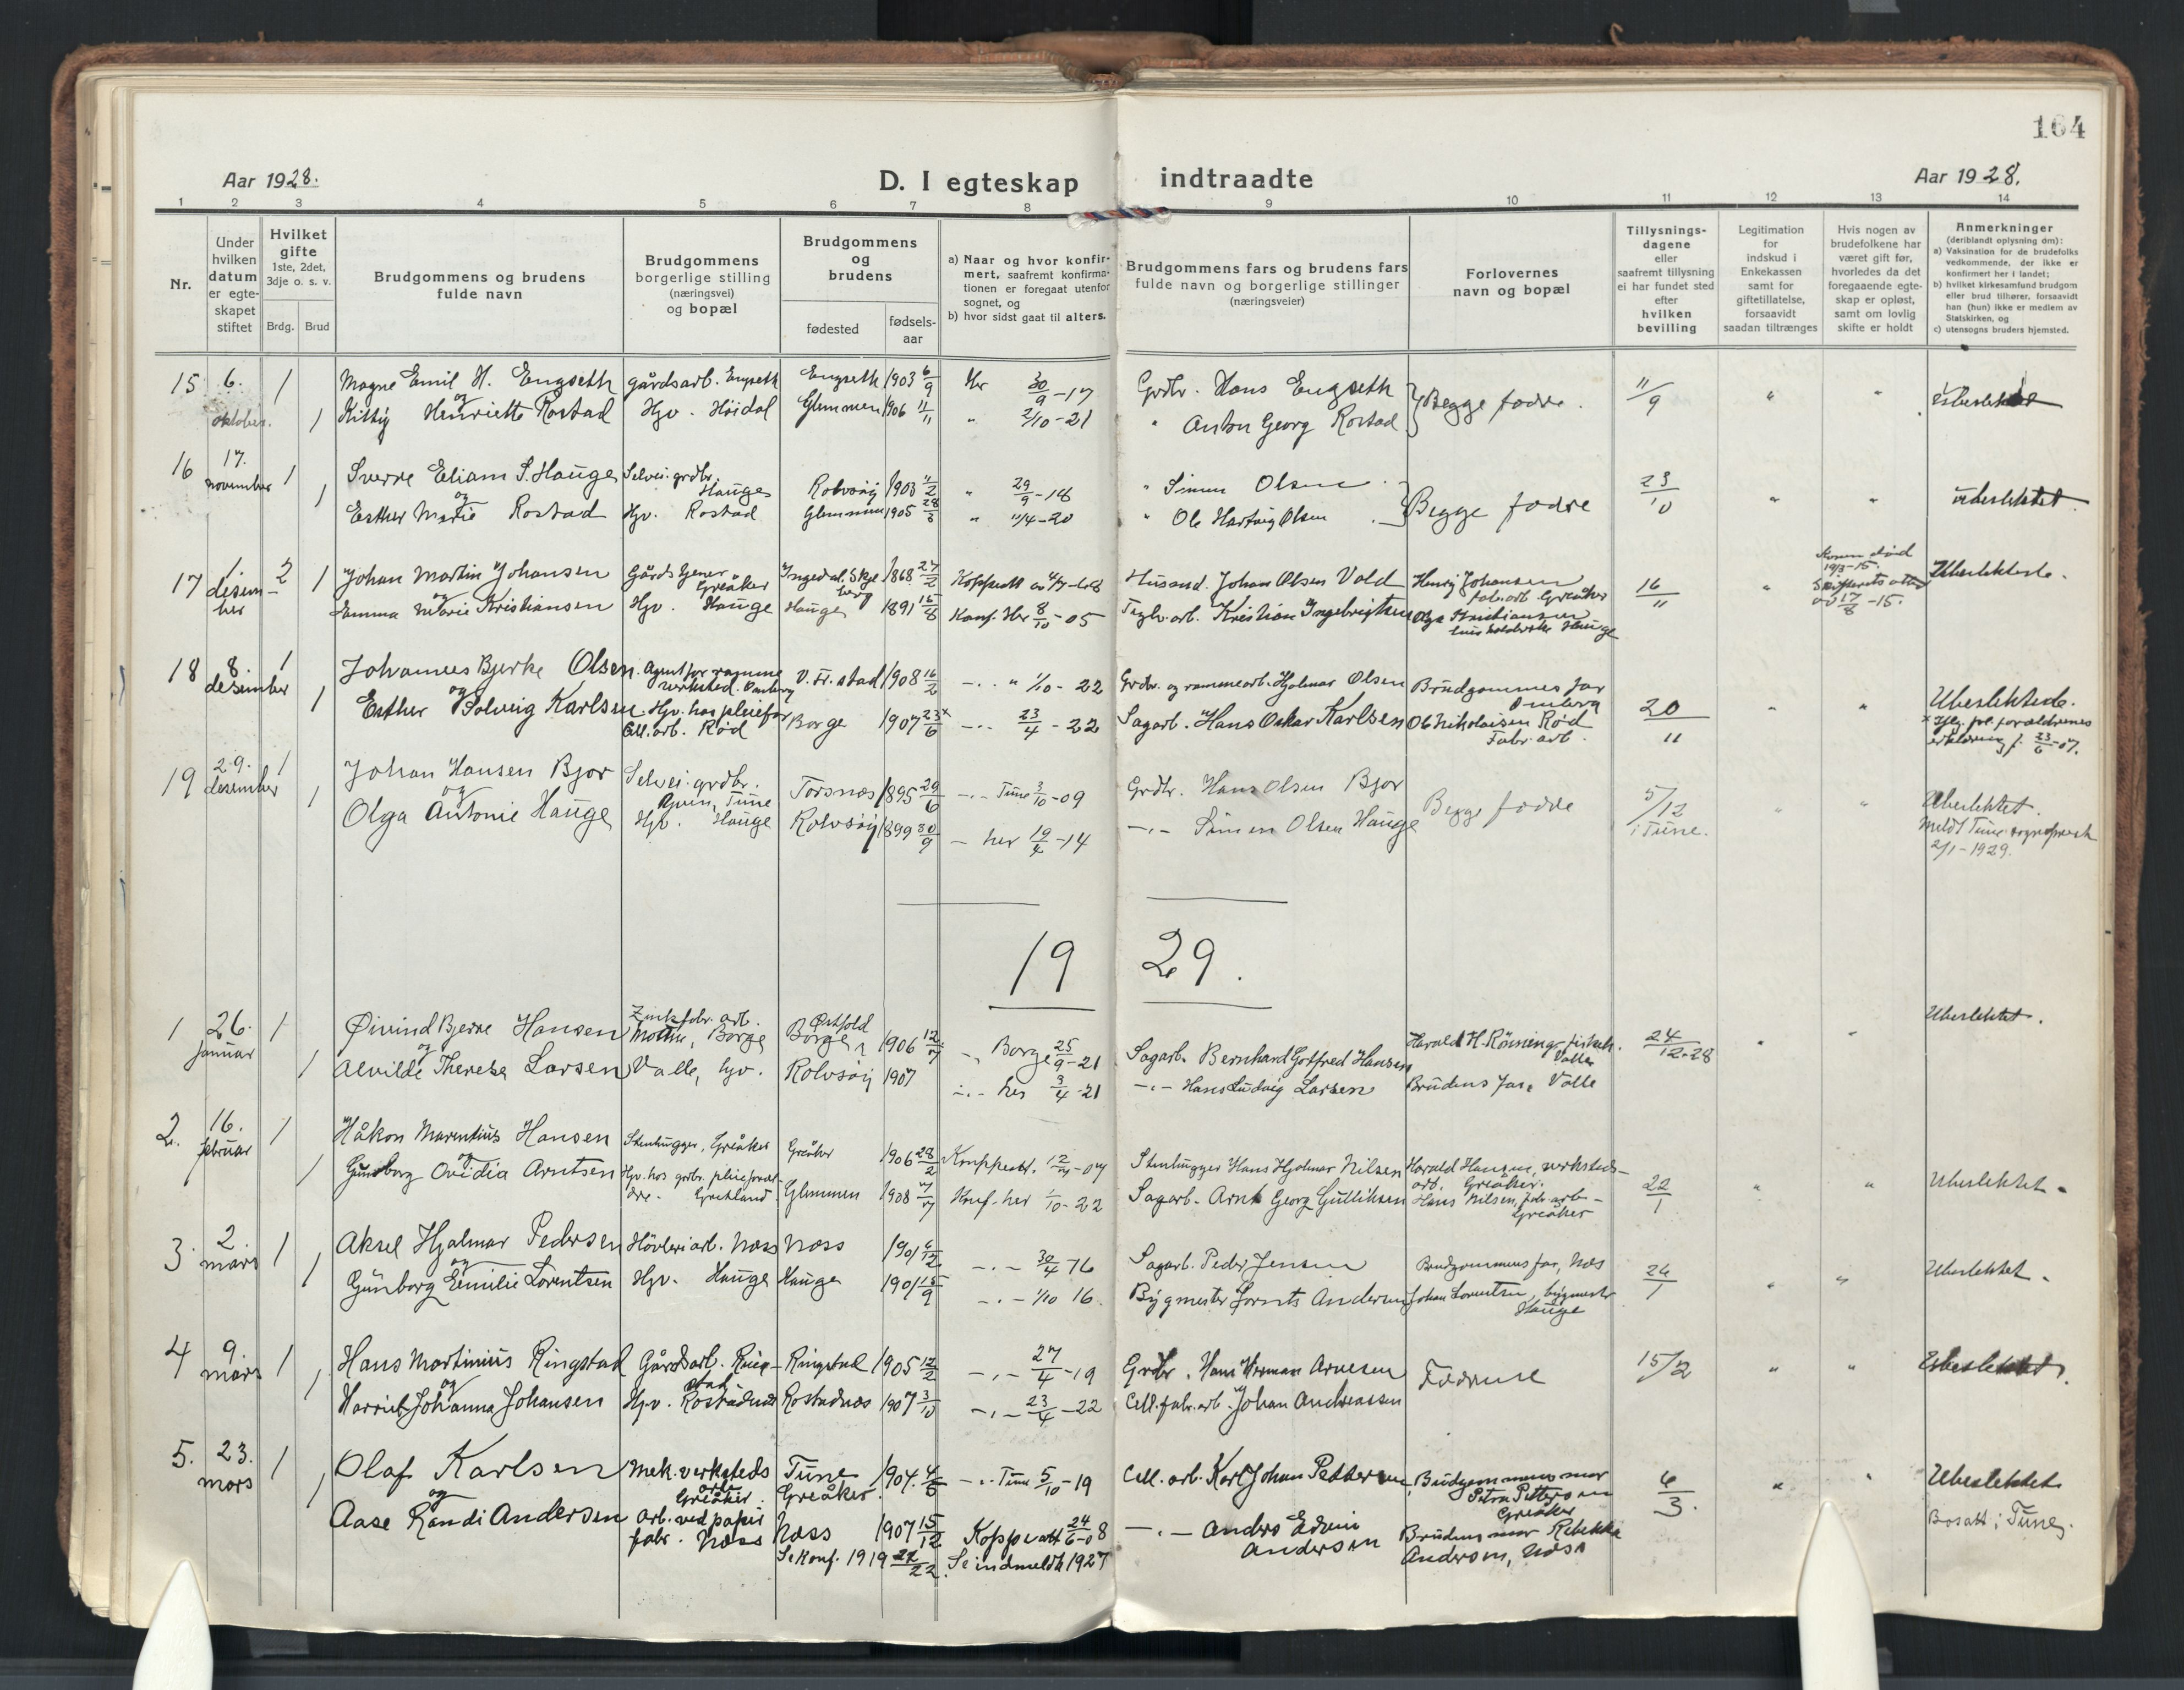 164
Aar 1928.
D. I egteskap indtraadte
Aar 1928.
1 2 3 4 5 6 7 8 9 10 11 12 13 14
Nr.
Under hvilken datum er egte-skapet stiftet
Hvilket gifte 1ste, 2det, 3dje o. s. v.
Brdg. Brud
Brudgommens og brudens fulde navn
Brudgommens borgerlige stilling (næringsvei) og bopæl
Brudgommens og brudens
fødested fødsels-aar
a) Naar og hvor konfir-mert, saafremt konfirma-tionen er foregaat utenfor sognet, og
b) hvor sidst gaat til alters.
Brudgommens fars og brudens fars fulde navn og borgerlige stillinger (næringsveier)
Forlovernes navn og bopæl
Tillysnings-dagene eller saafremt tillysning ei har fundet sted efter hvilken bevilling
Legitimation for indskud i Enkekassen samt for giftetillatelse, forsaavidt saadan tiltrænges
Hvis nogen av brudefolkene har været gift før, hvorledes da det foregaaende egte-skap er opløst, samt om lovlig skifte er holdt
Anmerkninger (deriblandt oplysning om):
a) Vaksination for de brudefolks vedkommende, der ikke er konfirmert her i landet;
b) hvilket kirkesamfund brudgom eller brud tilhører, forsaavidt han (hun) ikke er medlem av Statskirken, og
c) utensogns bruders hjemsted.
15 6. oktober. 1 Magne Emil H. Engseth gårdsarb. Engseth Engseth 1903 6/9 Her 30/9-17 Grdbr. Hans Engseth Begge fædre. 11/9 " " Ubeslektet
og
1 Kitty Henriette Rostad Hjv. Höidal Glemmen 1906 11/11 " 2/10-21 " Anton Georg Rostad
16 17. november 1 Sverre Eliam S. Hauge Selvei. grdbr. Hauge Rolvsöy 1903 11/2 " 29/9-18 " Simen Olsen Begge fædre 23/10 " " Ubeslektet.
og
1 Esther Marie Rostad Hjv. Rostad Glemmen 1905 " 11/4-20 " Ole Hartvig Olsen
17 1. desember 2 1 Johan Martin Johansen Gårdsgener Greåker Ingedal, Skjeberg 1868 27/2 Koppeatt Husmd. Johan Olsen Vold Henry Johansen fabr.arb. Greåker 16/11 " Konen död 19/3-15. Ubeslektede.
og
Emma Marie Kristiansen Hjv. Hauge Hauge 1891 15/8 Konf. Her 8/10-05 Teglv.arb. Kristian Ingebrigtsen Olga Kristiansen Hauge 17/8-15.
18 8. desember 1 Johannes Bjerke Olsen. Agent for ramme verksted. Omberg V. Fr.stad 1908 16/2 -"- " 1/10-22 Grdbr. og rammearb. Hjalmar Olsen Brudgommens far Omberg 20/11 " " Ubeslektede.
og
1 Esther Solveig Karlsen Hjv. hos pleiefar Cell. arb. Rød Borge 1907 23/6 x -"- 23/4-22 Sagarb. Hans Oskar Karlsen Ole Nikolaisen Rød Fabr. arb. x Iflg. forældrenes erklæring f. 23/6-07.
19 29. desember 1 Johan Hansen Bjor Selvei. grdbr. Tune Torsnæs 1895 29/6 -"- Tune 3/10-09 Grdbr. Hans Olsen Bjor Begge fædre 5/12 i Tune. " " Ubeslektet.
og
1 Olga Antonie Hauge Hjv. Hauge Rolvsöy 1899 30/9 - her 19/4-14 -"- Simen Olsen Hauge Meldt Tune sogneprest 2/1-1929.
19 29.
1 26. januar 1 Øivind Bjerre Hansen Zinkfabr. arb. Borge Borge, Østfold 1906 12/7 -"- Borge 25/9-21 Sagarb. Bernhard Gotfred Hansen Harald H. Rönning, Valle 24/12-28 " " Ubeslektet.
og
1 Alvilde Therese Larsen Valle, hjv. Rolvsöy 1907 -"- her 3/4-21 -"- Hans Ludvig Larsen Brudens far, Valle
2. 16. februar 1 Håkon Marentius Hansen Stenhugger, Greåker Greåker 1906 28/2 Koppeatt. 12/7-07 Stenhugger Hans Hjalmar Nilsen Harald Hansen, verksteds-arb. Greåker. 22/1 " " Ubeslektet.
og
1 Gunborg Ovidia Arntsen Hjv. hos grdbr. pleieforældre. Glemmen 1908 7/7 Konf. her 1/10-22 Sagarb. Arnt Georg Gulliksen Hans Nilsen, fabr.arb. Greåker
3. 2. mars 1 Aksel Hjalmar Pedersen Hövleriarb. Næss Næss 1901 6/12 -"- 30/4 16 Sagarb. Peder Jensen Brudgommens far, Næs 26/1 " " Ubeslektet.
og
1 Gunborg Emilie Lorentsen Hjv. Hauge Hauge 1901 15/9 -"- 1/10 16. Bygmester Lornts Andersen Johan Lorentsen, bygmester Hauge
4 9. mars 1 Hans Martinius Ringstad Gårdsarb. Ringstad Ringstad 1905 12/2 -"- 27/4-19 Grdbr. Hans Herman Arnesen Fædrene 15/2 " " Ubeslektet.
og
1 Harriet Johanna Johansen Hjv. Rostadnæs Rostadnæs 1907 3/10 -"- 23/4-22 Cell. fabr.arb. Johan Andreassen
5. 23. mars 1 Olaf Karlsen Mek. verksteds arb. Greåker. Tune Greåker. 1904. 4/5 -"- Tune 5/10-19 Cell. arb. Karl Johan Pettersen Brudgommens mor Petra Pettersen Greåker 6/3. " " Ubeslektet
og
1 Aase Randi Andersen Arb. ved papir fabr. Næss Næss 1907 15/12 Koppeatt 24/6-08 -"- Anders Edvin Andersen Brudens mor Rebekka Andersen, Næss Bosatt i Tune.
Se konf. 1919 Se indmeldt 1927